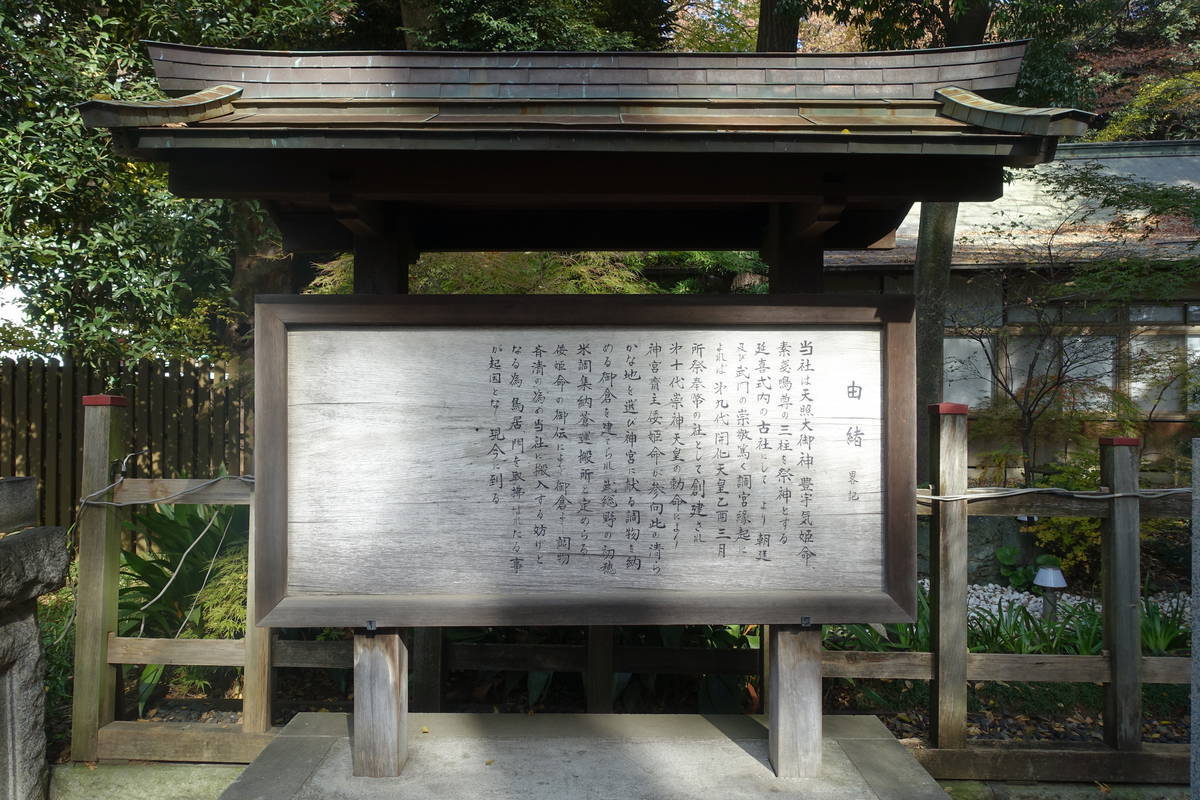 由緒 畧記
当社は天照大御神 豊宇気姫命
素盞鳴尊の三柱を祭神とする
延喜式内の古社にして より 朝廷
及び武門の崇敬篤く調宮縁起に
よれば 第九代 開化天皇乙酉三月
所祭奉幣の社として創建され
第十代崇神天皇の勅命により
神宮斎主倭姫命が参向此の清らかな
かな地を選び神宮に献る調物を納
める御倉を建てられ 武総野の初穂
米調集納蒼運搬所と定めらる
倭姫命の御伝により御倉より調物
斉清の為め当社に搬入する妨げと
なる為 鳥居 門を取拂はれたる事
が起因となり 現今に到る